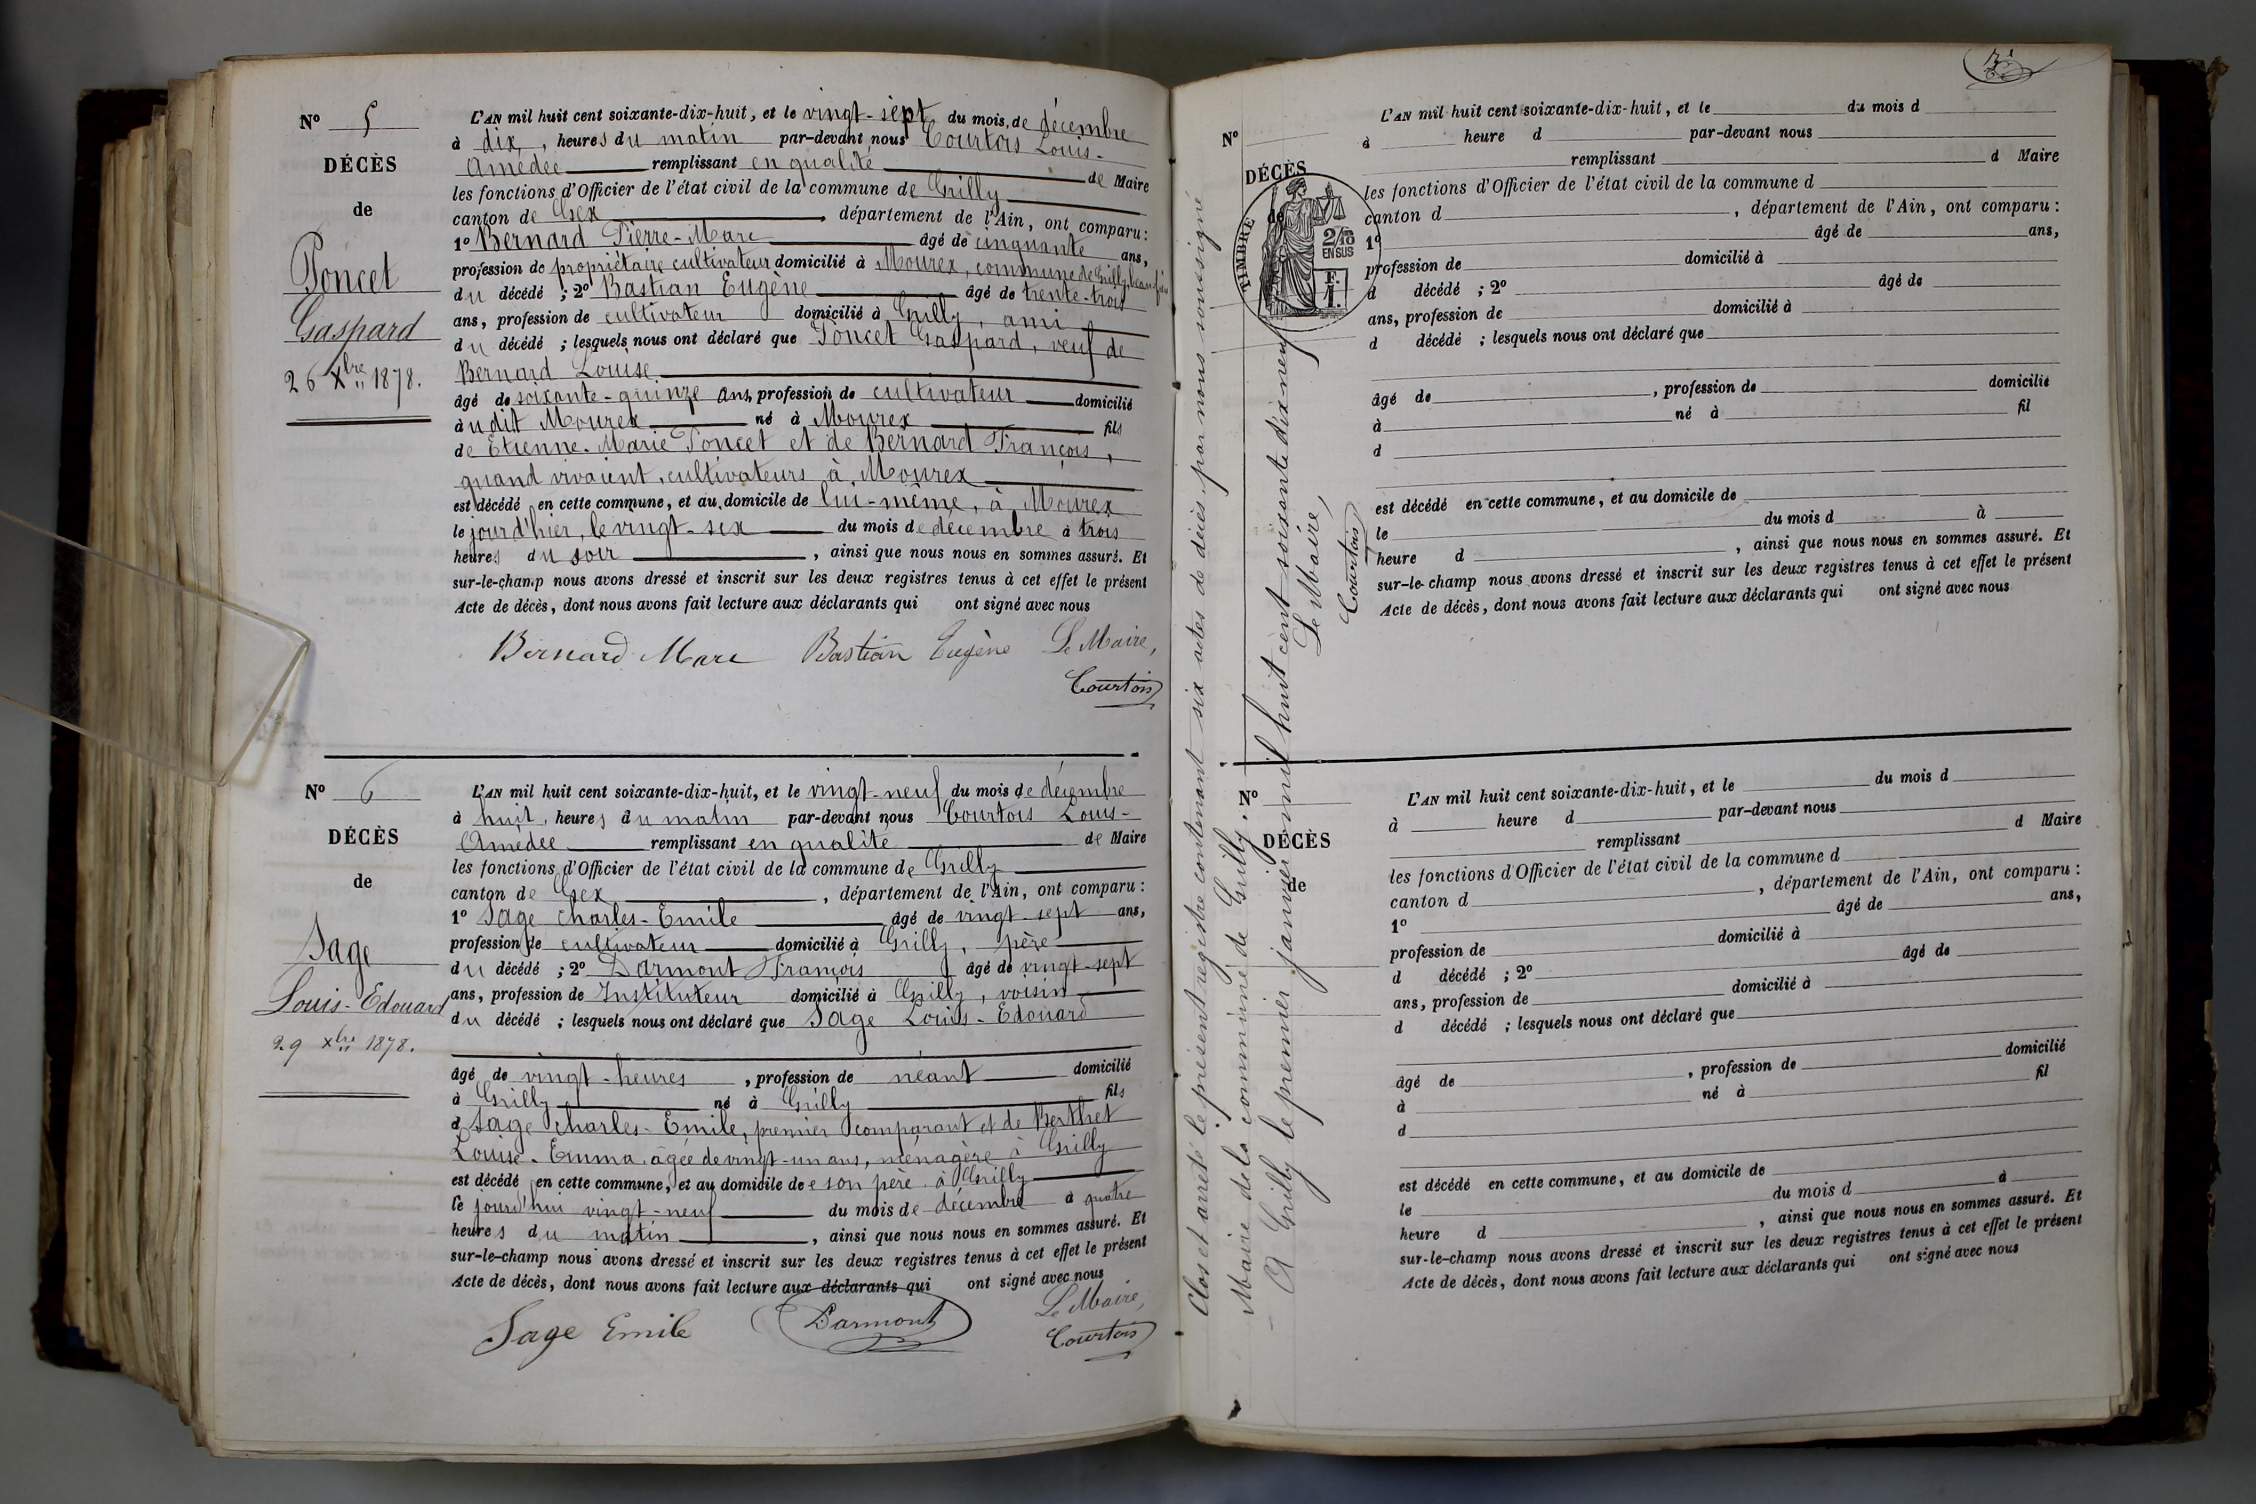 N° 5
DÉCÈS
de
Poncet
Gaspard
26 Xbre 1878.
L'AN mil huit cent soixante-dix-huit, et le vingt-sept du mois de décembre
à dix, heures du matin par-devant nous Courtois Louis-
Amédée remplissant en qualité de Maire
les fonctions d'Officier de l'état civil de la commune de Grilly
canton de Gex, département de l'Ain, ont comparu:
1° Bernard Pierre-Marc âgé de cinquante ans,
profession de propriétaire cultivateur domicilié à Mourex, commune de Grilly, beau-frère
du décédé ; 2° Bastian Eugène âgé de trente-trois
ans, profession de cultivateur domicilié à Grilly, ami
du décédé ; lesquels nous ont déclaré que Poncet Gaspard, veuf de
Bernard Louise
âgé de soixante-quinze ans, profession de cultivateur domicilié
àudit Mourex né à Mourex fils
de Etienne-Marie Poncet et de Bernard François,
quand vivaient, cultivateurs à Mourex
est décédé en cette commune, et au domicile de lui-même, à Mourex
le jour d'hier, le vingt-six du mois de décembre à trois
heures du soir, ainsi que nous nous en sommes assuré. Et
sur-le-champ nous avons dressé et inscrit sur les deux registres tenus à cet effet le présent
Acte de décès, dont nous avons fait lecture aux déclarants qui ont signé avec nous
Bernard Marc Bastian Eugène Le Maire,
Courtois
N° 6
DÉCÈS
de
Sage
Louis-Edouard
29 Xbre 1878.
L'AN mil huit cent soixante-dix-huit, et le vingt-neuf du mois de décembre
à huit, heures du matin par-devant nous Courtois Louis-
Amédée remplissant en qualité de Maire
les fonctions d'Officier de l'état civil de la commune de Grilly
canton de Gex, département de l'Ain, ont comparu:
1° Sage Charles-Emile âgé de vingt-sept ans,
profession de cultivateur domicilié à Grilly, père
du décédé ; 2° Darmont François âgé de vingt-sept
ans, profession de Instituteur domicilié à Grilly, voisin
du décédé ; lesquels nous ont déclaré que Sage Louis-Edouard
âgé de vingt-heures, profession de néant domicilié
à Grilly né à Grilly fils
d Sage Charles-Emile, premier comparant et de Berthet
Louise-Emma, âgée de vingt-un ans, ménagère à Grilly
est décédé en cette commune, et au domicile de son père à Grilly
le jourd'hui vingt-neuf du mois de décembre à quatre
heures du matin, ainsi que nous nous en sommes assuré. Et
sur-le-champ nous avons dressé et inscrit sur les deux registres tenus à cet effet le présent
Acte de décès, dont nous avons fait lecture aux déclarants qui ont signé avec nous
Sage Emile Darmont Le Maire,
Courtois
Clos et arrêté le présent registre contenant six actes de décès, par nous soussigné
Maire de la commune de Grilly.
A Grilly le premier janvier mil huit cent soixante dix-neuf
Le Maire,
Courtois
N°
DÉCÈS
de
TIMBRE
2/10
EN SUS
F.
1.
L'AN mil huit cent soixante-dix-huit, et le du mois d
à heure d par-devant nous
remplissant d Maire
les fonctions d'Officier de l'état civil de la commune d
canton d , département de l'Ain, ont comparu:
1° âgé de ans,
profession de domicilié à
d décédé ; 2° âgé de
ans, profession de domicilié à
d décédé ; lesquels nous ont déclaré que
âgé de , profession de domicilié
à né à fil
d
est décédé en cette commune, et au domicile de
le du mois d à
heure d , ainsi que nous nous en sommes assuré. Et
sur-le-champ nous avons dressé et inscrit sur les deux registres tenus à cet effet le présent
Acte de décès, dont nous avons fait lecture aux déclarants qui ont signé avec nous
N°
DÉCÈS
de
L'AN mil huit cent soixante-dix-huit, et le du mois d
à heure d par-devant nous
remplissant d Maire
les fonctions d'Officier de l'état civil de la commune d
canton d , département de l'Ain, ont comparu:
1° âgé de ans,
profession de domicilié à
d décédé ; 2° âgé de
ans, profession de domicilié à
d décédé ; lesquels nous ont déclaré que
âgé de , profession de domicilié
à né à fil
d
est décédé en cette commune, et au domicile de
le du mois d à
heure d , ainsi que nous nous en sommes assuré. Et
sur-le-champ nous avons dressé et inscrit sur les deux registres tenus à cet effet le présent
Acte de décès, dont nous avons fait lecture aux déclarants qui ont signé avec nous